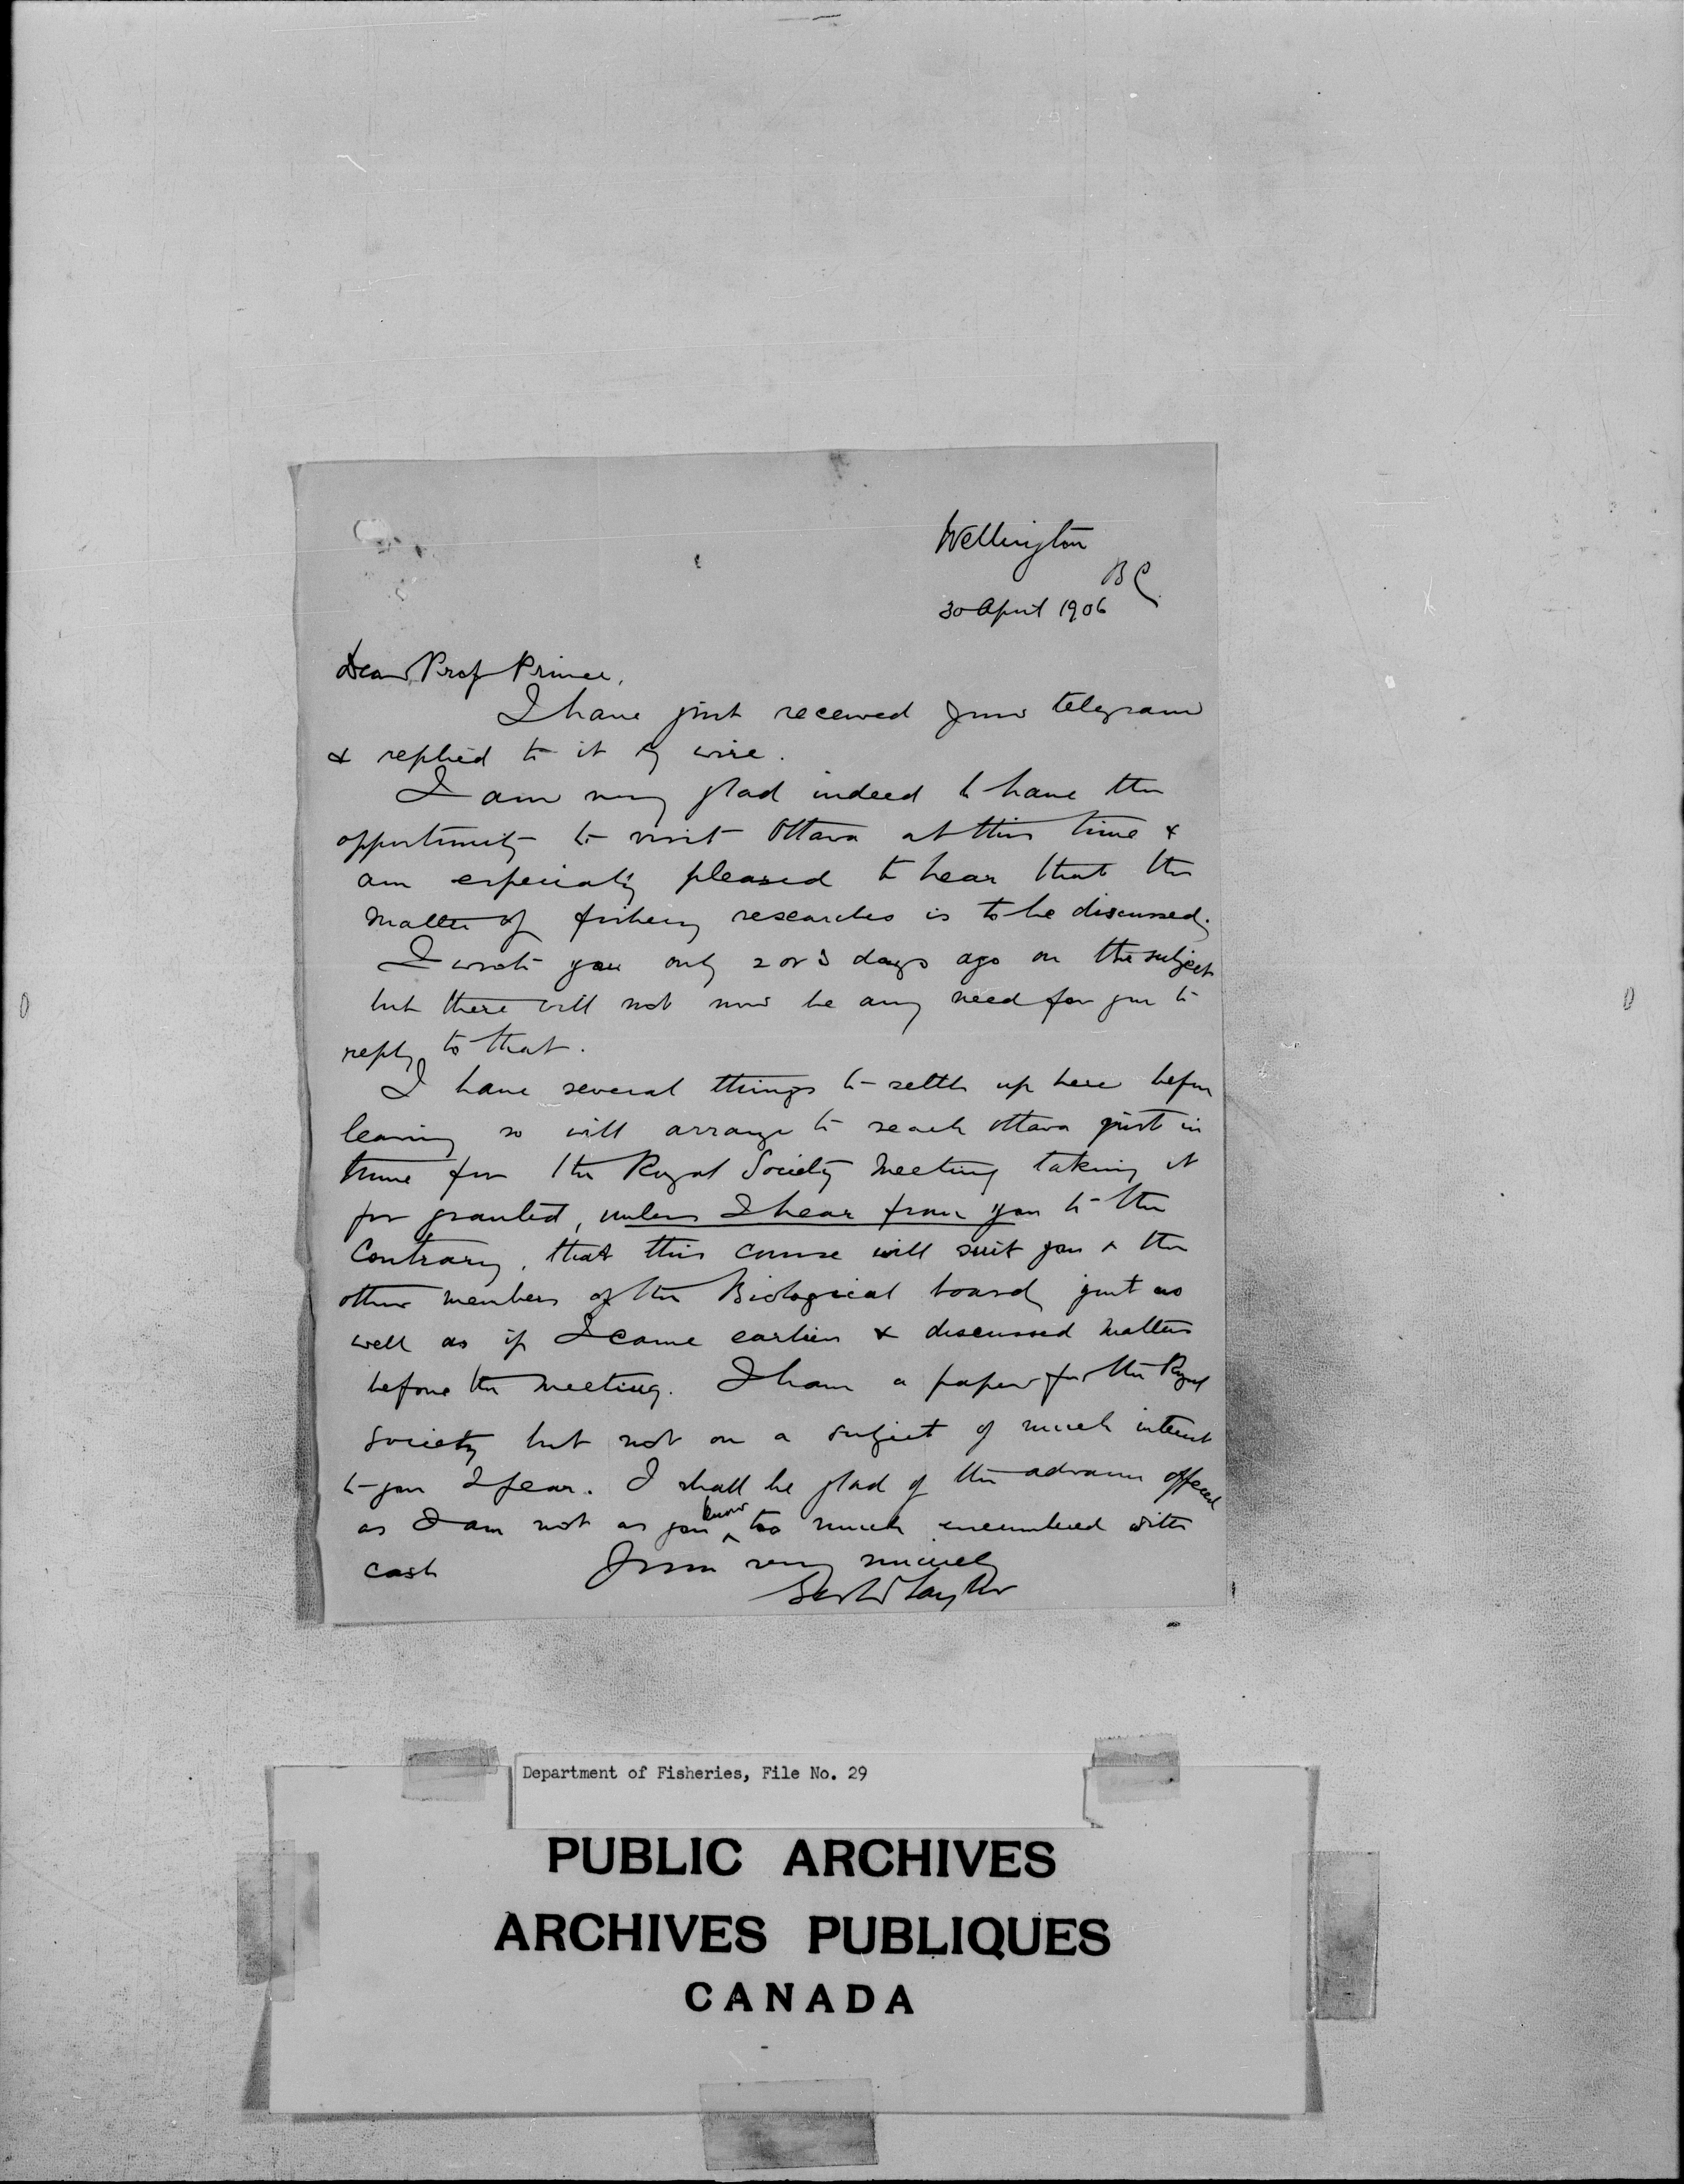 Wellington
B C
30 April 1906
Dear Prof Prince,
I have just received your telegram
& replied to it by wire.
I am very glad indeed to have the
opportunity to visit Ottawa at this time &
am especially pleased to hear that the
matter of fishery researches is to be discussed.
I wrote you only 2 or 3 days ago on the subject
but there will not now be any need for you to
reply to that.
I have several things to settle up here before
leaving so will arrange to reach Ottawa just in
time for the Royal Society Meeting taking it
for granted, unless I hear from you to the
Contrary, that this course will suit you & the
other members of the Biological board just as
well as if I came earlier & discussed matters
before the meeting. I have a paper for the Royal
Society but not on a subject of much interest
to you I fear. I shall be glad of the advance offered
as I am not as you know too much encumbered with
cash Yours very sincerely
Geo W Taylor
Department of Fisheries, File No. 29
PUBLIC ARCHIVES
ARCHIVES PUBLIQUES
CANADA